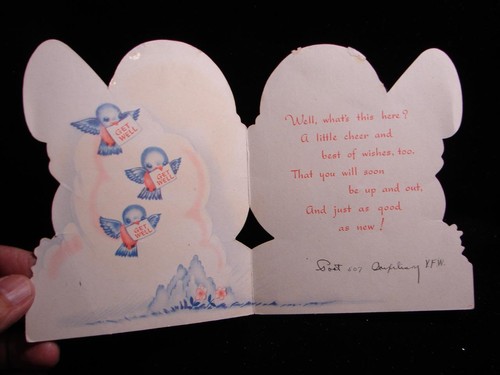 GET
WELL
GET
WELL
GET
WELL
Well, what's this here?
A little cheer and
best of wishes, too.
That you will soon
be up and out,
And just as good
as new!
Post Auxiliary V.F.W.